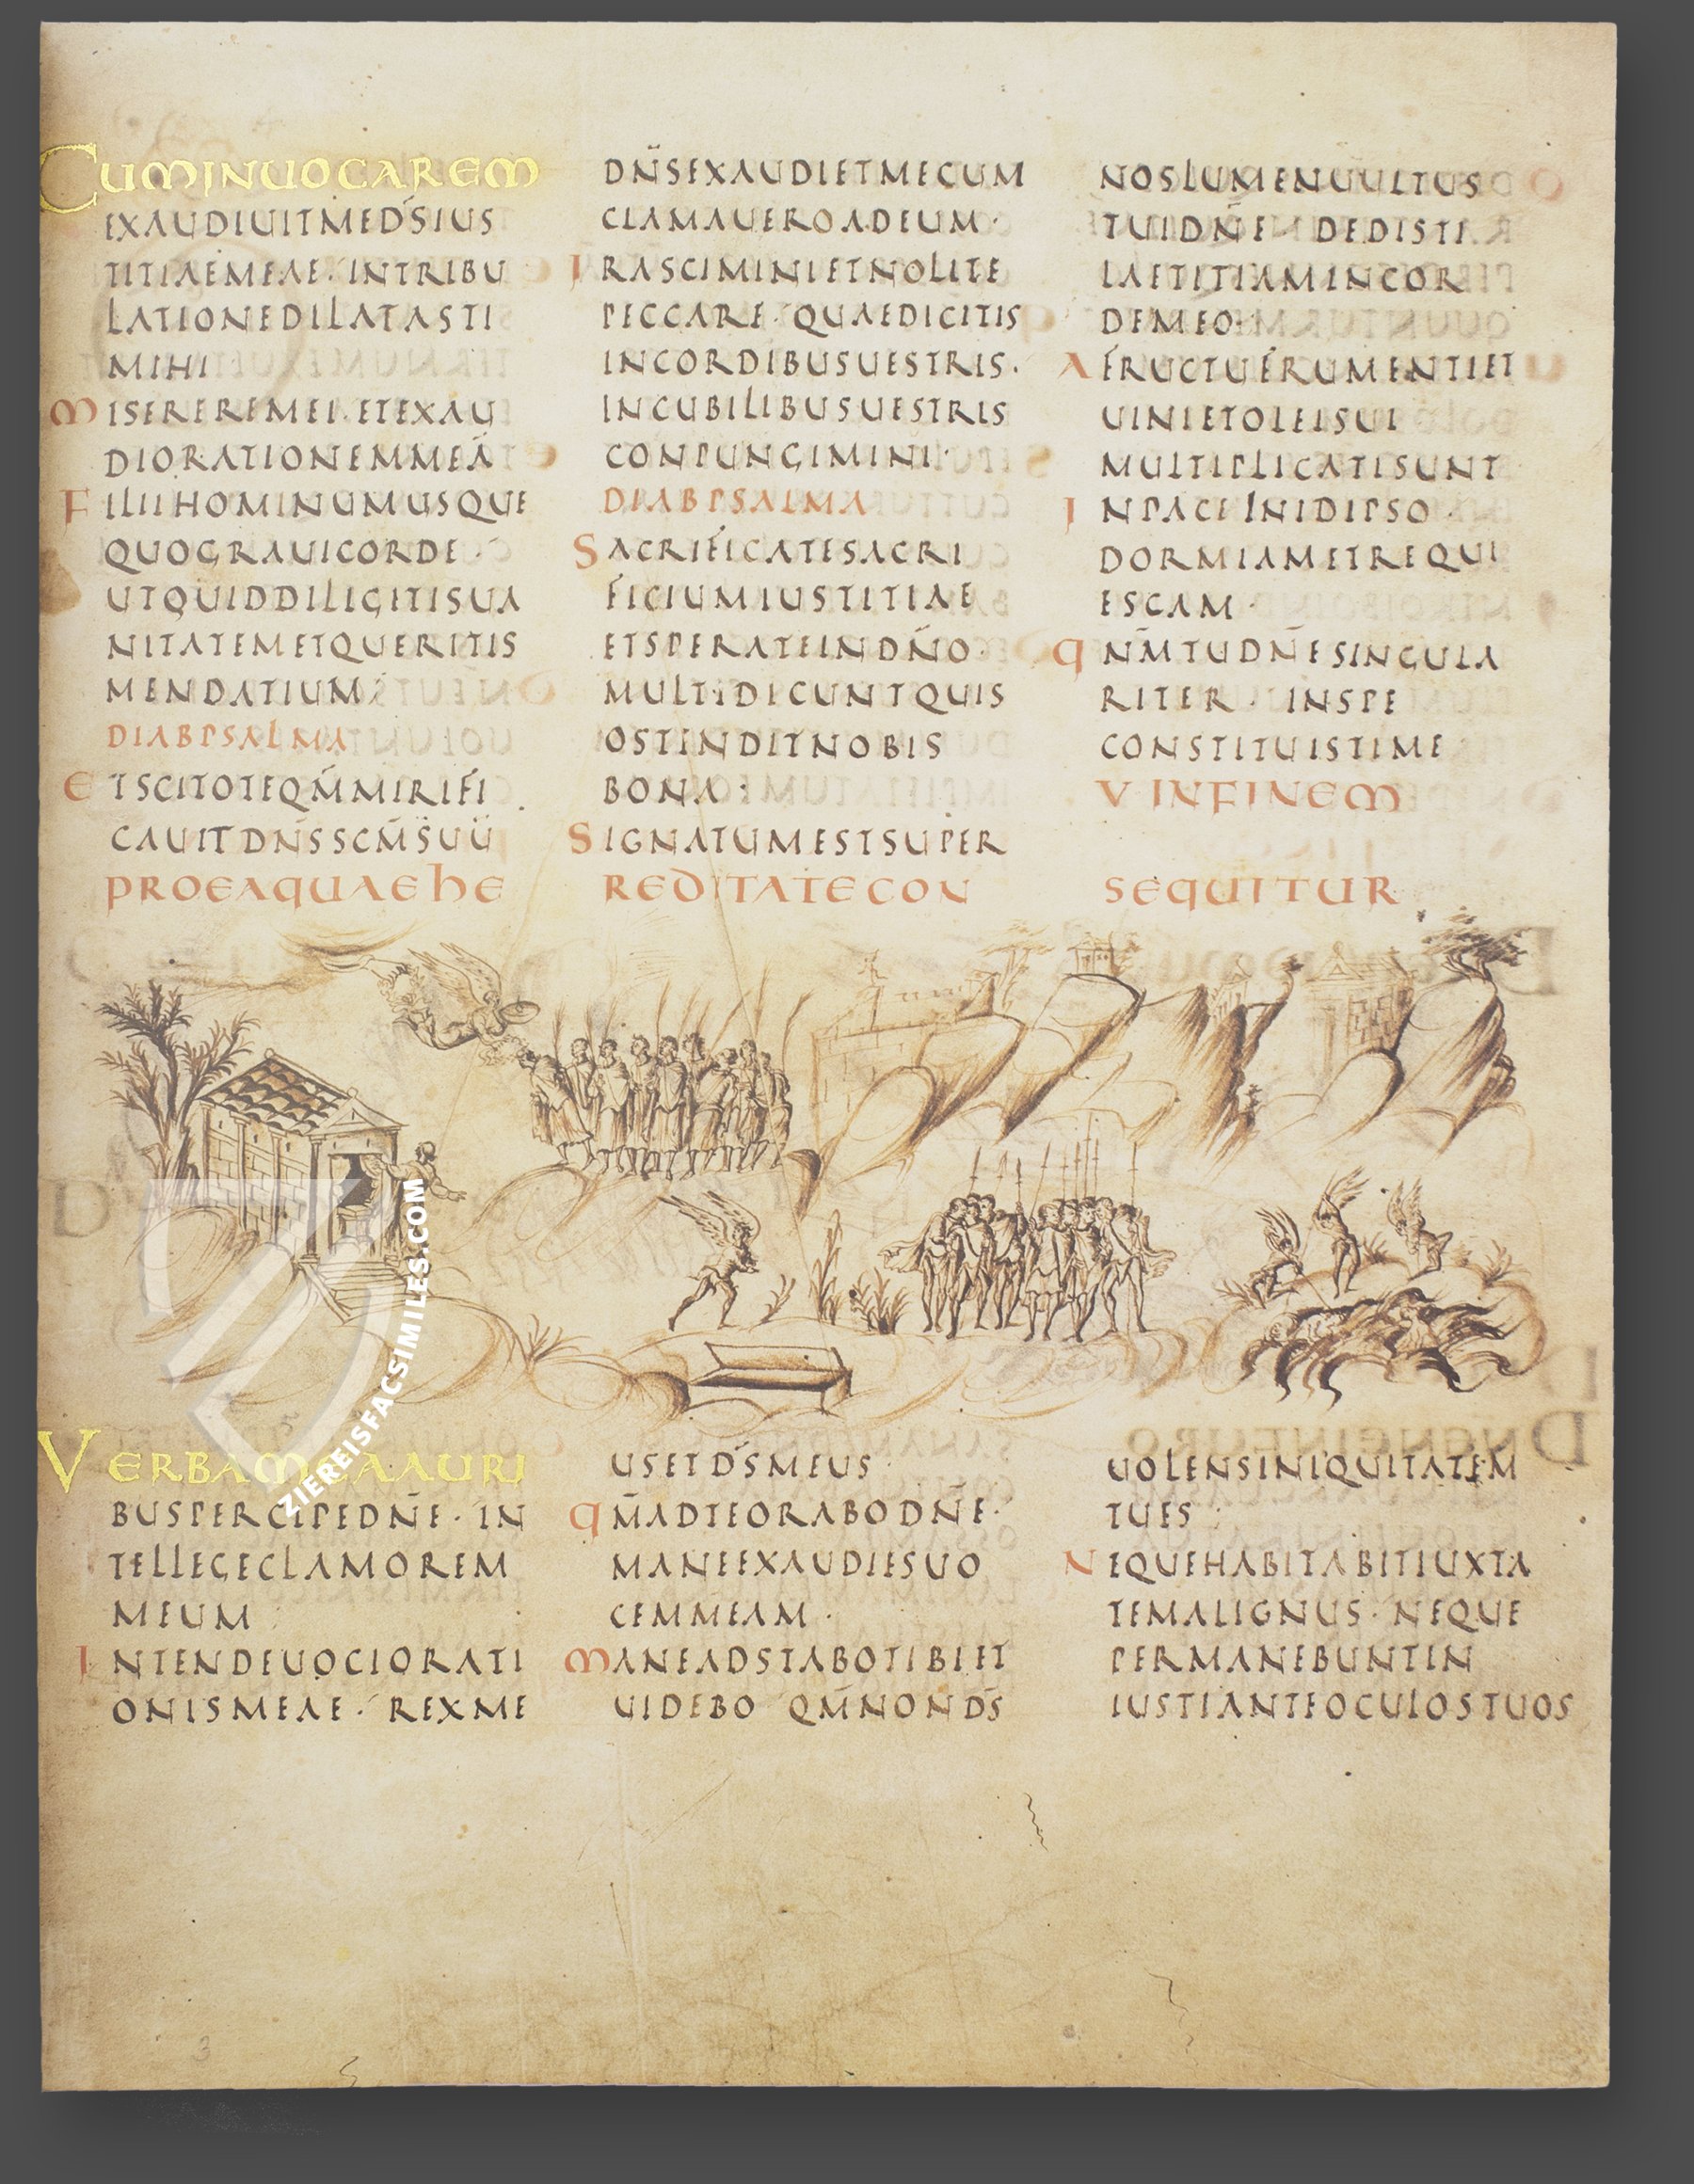 CUMINUOCAREM
EXAUDIUITMEDS̄IUS
TITIAEMEAE· INTRIBU
LATIONEDILATASTI
MIHI
MISEREREMEI·ETEXAU
DIORATIONEMMEĀ
FILIIHOMINUMUSQUE
QUOGRAUICORDE·
UTQUIDDILIGITISUA
NITATEMETQUERITIS
MENDATIUM
DIABPSALMA
ETSCITOTEQM̄MIRIFI
CAUITDN̄SSCM̄SUŪ
DN̄SEXAUDIETMECUM
CLAMAUEROADEUM·
IRASCIMINIETNOLITE
PECCARE· QUAEDICITIS
INCORDIBUSUESTRIS·
INCUBILIBUSUESTRIS
CONPUNGIMINI·
DIABPSALMA
SACRIFICATESACRI
FICIUMIUSTITIAE
ETSPERATEINDN̄O·
MULTIDICUNTQUIS
OSTENDITNOBIS
BONA:
SIGNATUMESTSUPER
NOSLUMENUULTUS
TUIDN̄E· DEDISTI
LAETITIAMINCOR
DEMEO·
AFRUCTUFRUMENTIET
UINIETOLEISUI
MULTIPLICATISUNT
INPACEINIDIPSO·
DORMIAMETREQUI
ESCAM·
QNM̄TUDN̄ESINGULA
RITER· INSPE
CONSTITUISTIME
V INFINEM
PROEAQUAEHE REDITATECON SEQUITUR
VERBAMEAAURI
BUSPERCIPEDN̄E· IN
TELLEGECLAMOREM
MEUM
INTENDEUOCIORATI
ONISMEAE· REXME
USETDS̄MEUS
QM̄ADTEORABODN̄E·
MANEEXAUDIESUO
CEMMEAM·
MANEADSTABOTIBIET
UIDEBO QM̄NONDS̄
UOLENSINIQUITATEM
TUES
NEQUEHABITABITIUXTA
TEMALIGNUS· NEQUE
PERMANEBUNTIN
IUSTIANTEOCULOSTUOS
ZIEREISFACSIMILES.COM
3